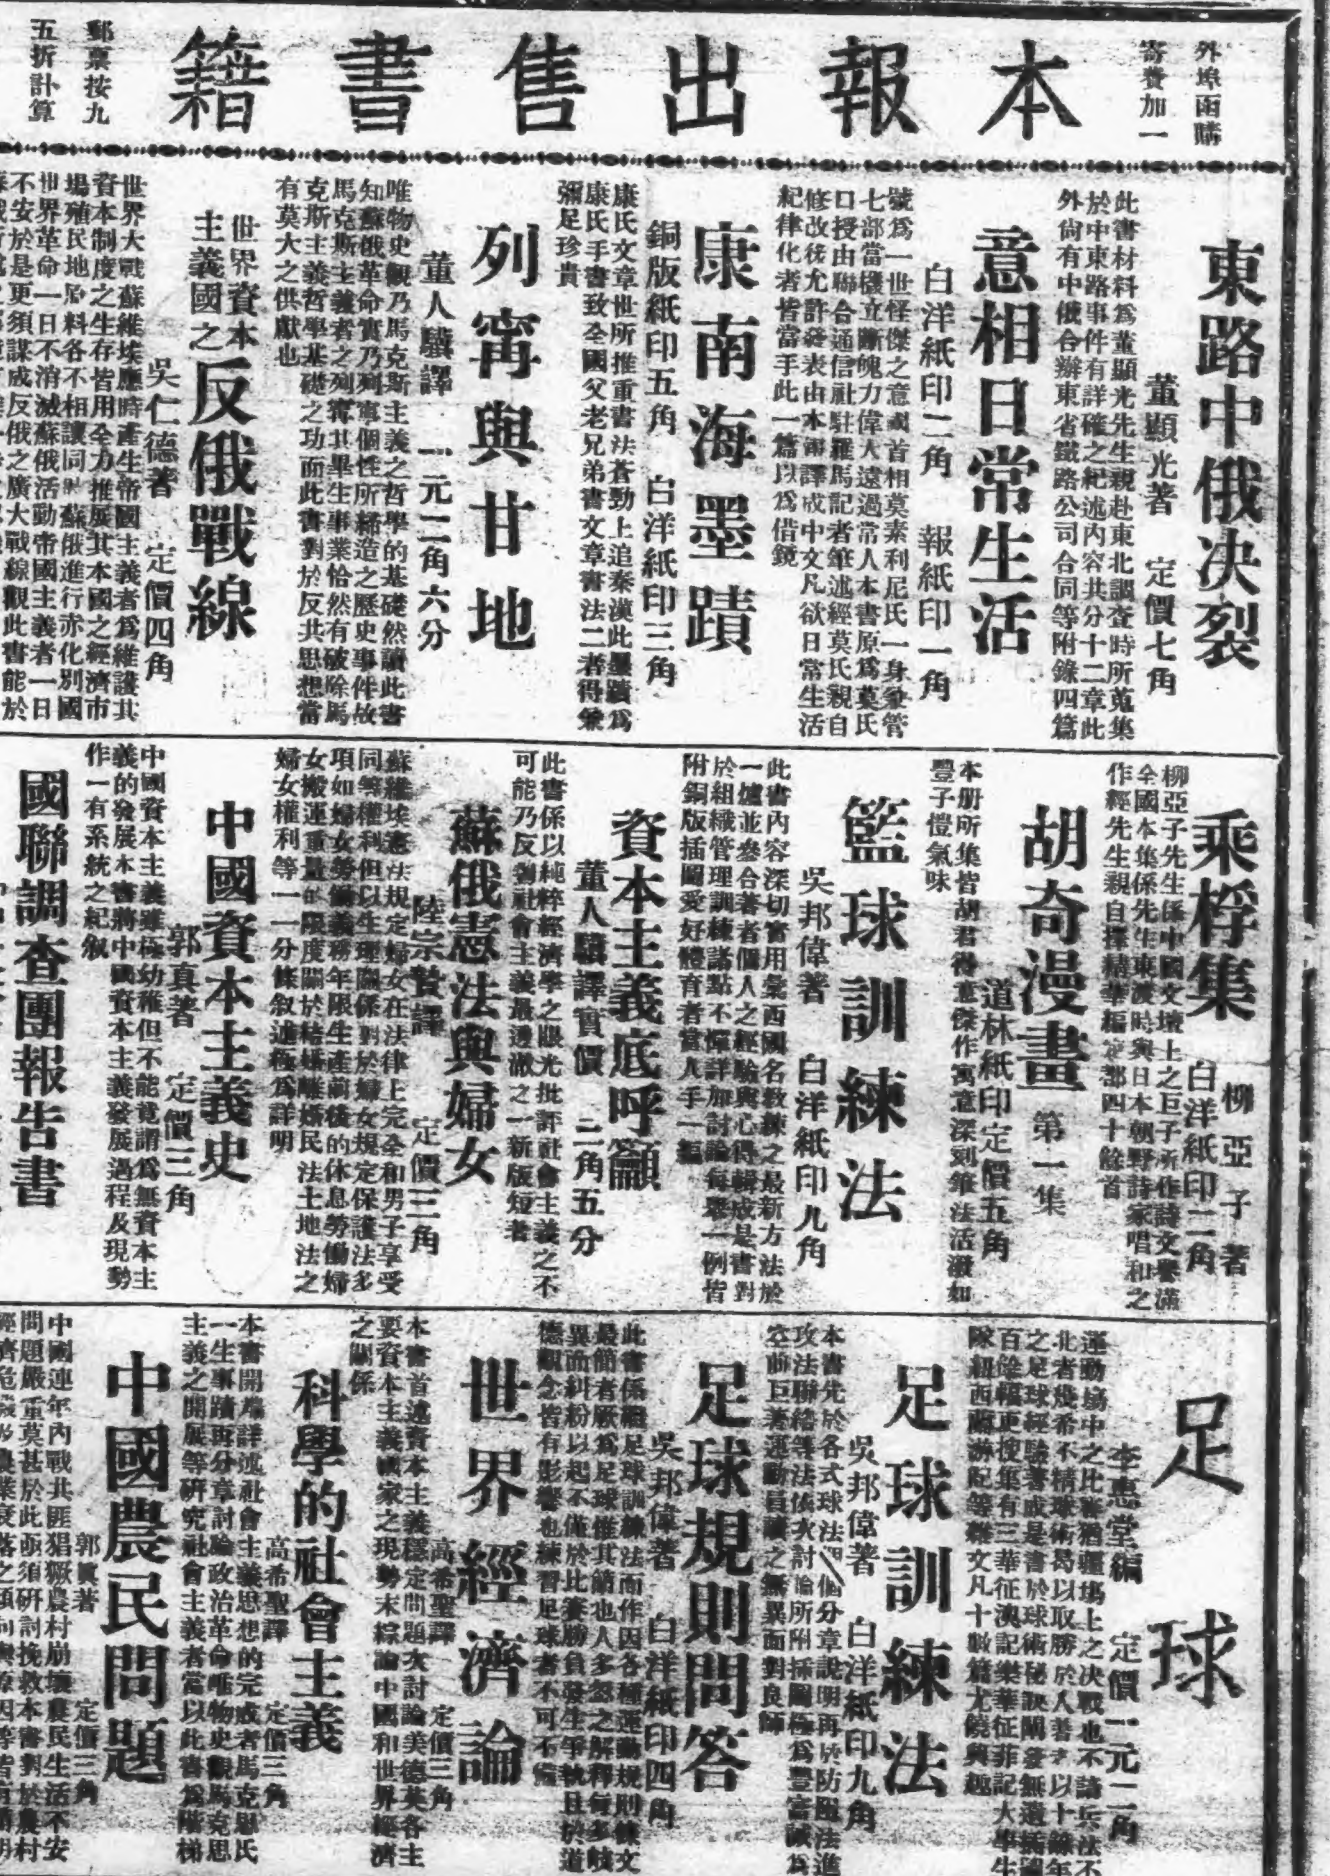 外埠函購
寄費加一
本報出售書籍
郵票按九
五折計算
東路中俄決裂
董顯光著　定價七角
此書材料為董顯光先生親赴東北調查時所蒐集
於中東路事件有詳確之紀述內容共分十二章此
外尚有中俄合辦東省鐵路公司合同等附錄四篇
意相日常生活
白洋紙印二角　報紙印一角
號為一世怪傑之意國首相莫索利尼氏一身兼管
七部當機立斷魄力偉大遠過常人本書原為莫氏
口授由聯合通信社駐羅馬記者筆述經莫氏親自
修改後允許發表由本報譯成中文凡欲日常生活
紀律化者皆當手此一篇以為借鏡
康南海墨蹟
銅版紙印五角　白洋紙印三角
康氏文章世所推重書法蒼勁上追秦漢此墨蹟為
康氏手書致全國父老兄弟書文章書法二者得兼
彌足珍貴
列寗與甘地
董人驥譯　一元二角六分
唯物史觀乃馬克斯主義之哲學的基礎然讀此書
知蘇俄革命實乃列寗個性所構造之歷史事件故
馬克斯主義者之列寗其畢生事業恰然有破除馬
克斯主義哲學基礎之功而此書對於反共思想當
有莫大之供獻也
世界資本
主義國之
反俄戰線
吳仁德著　定價四角
世界大戰蘇維埃應時產生帝國主義者為維護其
資本制度之生存皆用全力推展其本國之經濟市
場殖民地原料各不相讓同時蘇俄進行赤化別國
世界革命一日不消滅蘇俄活動帝國主義者一日
不安於是更須謀成反俄之廣大戰線觀此書能於
乘桴集
柳亞子著
白洋紙印二角
柳亞子先生係中國文壇上之巨子所作詩文譽滿
全國本集係先生東渡時與日本朝野詩家唱和之
作經先生親自擇精華編定都四十餘首
胡奇漫畫　第一集
道林紙印定價五角
本册所集皆胡君得意傑作寓意深刻筆法活潑如
豐子愷氣味
籃球訓練法
吳邦偉著　白洋紙印九角
此書內容深切實用彙西國名教練之最新方法於
一爐並參合著者個人之經驗與心得輯成是書對
於組織管理訓練諸點不憚詳加討論每舉一例皆
附銅版插圖愛好體育者當人手一編
資本主義底呼籲
董人驥譯實價　二角五分
此書係以純粹經濟學之眼光批評社會主義之不
可能乃反對社會主義最透澈之一新版短著
蘇俄憲法與婦女
陸宗贄譯　定價三角
蘇維埃憲法規定婦女在法律上完全和男子享受
同等權利但以生理關係對於婦女規定保護法多
項如婦女勞働義務年限生產前後的休息勞働婦
女搬運重量的限度關於結婚離婚民法土地法之
婦女權利等一一分條敘述極為詳明
中國資本主義史
郭真著　定價三角
中國資本主義雖極幼稚但不能竟謂為無資本主
義的發展本書將中國資本主義發展過程及現勢
作一有系統之紀叙
國聯調查團報告書
足球
李惠堂編　定價一元二角
運動場中之比賽猶疆場上之決戰也不諳兵法不
北者幾希不精球術曷以取勝於人善才以十餘年
之足球經驗著成是書於球術秘訣闡發無遺插圖
百餘幅更搜集有三華征澳記樂華征菲記大學生
隊紐西蘭游記等雜文凡十數篇尤饒興趣
足球訓練法
吳邦偉著　白洋紙印九角
本書先於各式球法分章說明再於防堅法進
攻法聯絡等法依次討論所附採圖極為豐富誠為
空前巨著運動員讀之無異面對良師
足球規則問答
吳邦偉著　白洋紙印四角
此書係繼足球訓練法而作因各種運動規則條文
最簡者厥為足球惟其簡也人多忽之解釋每多岐
異而糾紛以起不僅於比賽勝負發生爭執且於道
德觀念皆有影響也練習足球者不可不備
世界經濟論
高希聖譯　定價三角
本書首述資本主義穩定問題次討論美德英各主
要資本主義國家之現勢末綜論中國和世界經濟
之關係
科學的社會主義
高希聖譯　定價三角
本書開端詳述社會主義思想的完成者馬克思氏
一生事蹟再分章討論政治革命唯物史觀馬克思
主義之開展等研究社會主義者當以此書為階梯
中國農民問題
郭真著　定價三角
中國連年內戰共匪猖獗農村崩壞農民生活不安
問題嚴重莫甚於此亟須研討挽救本書對於農村